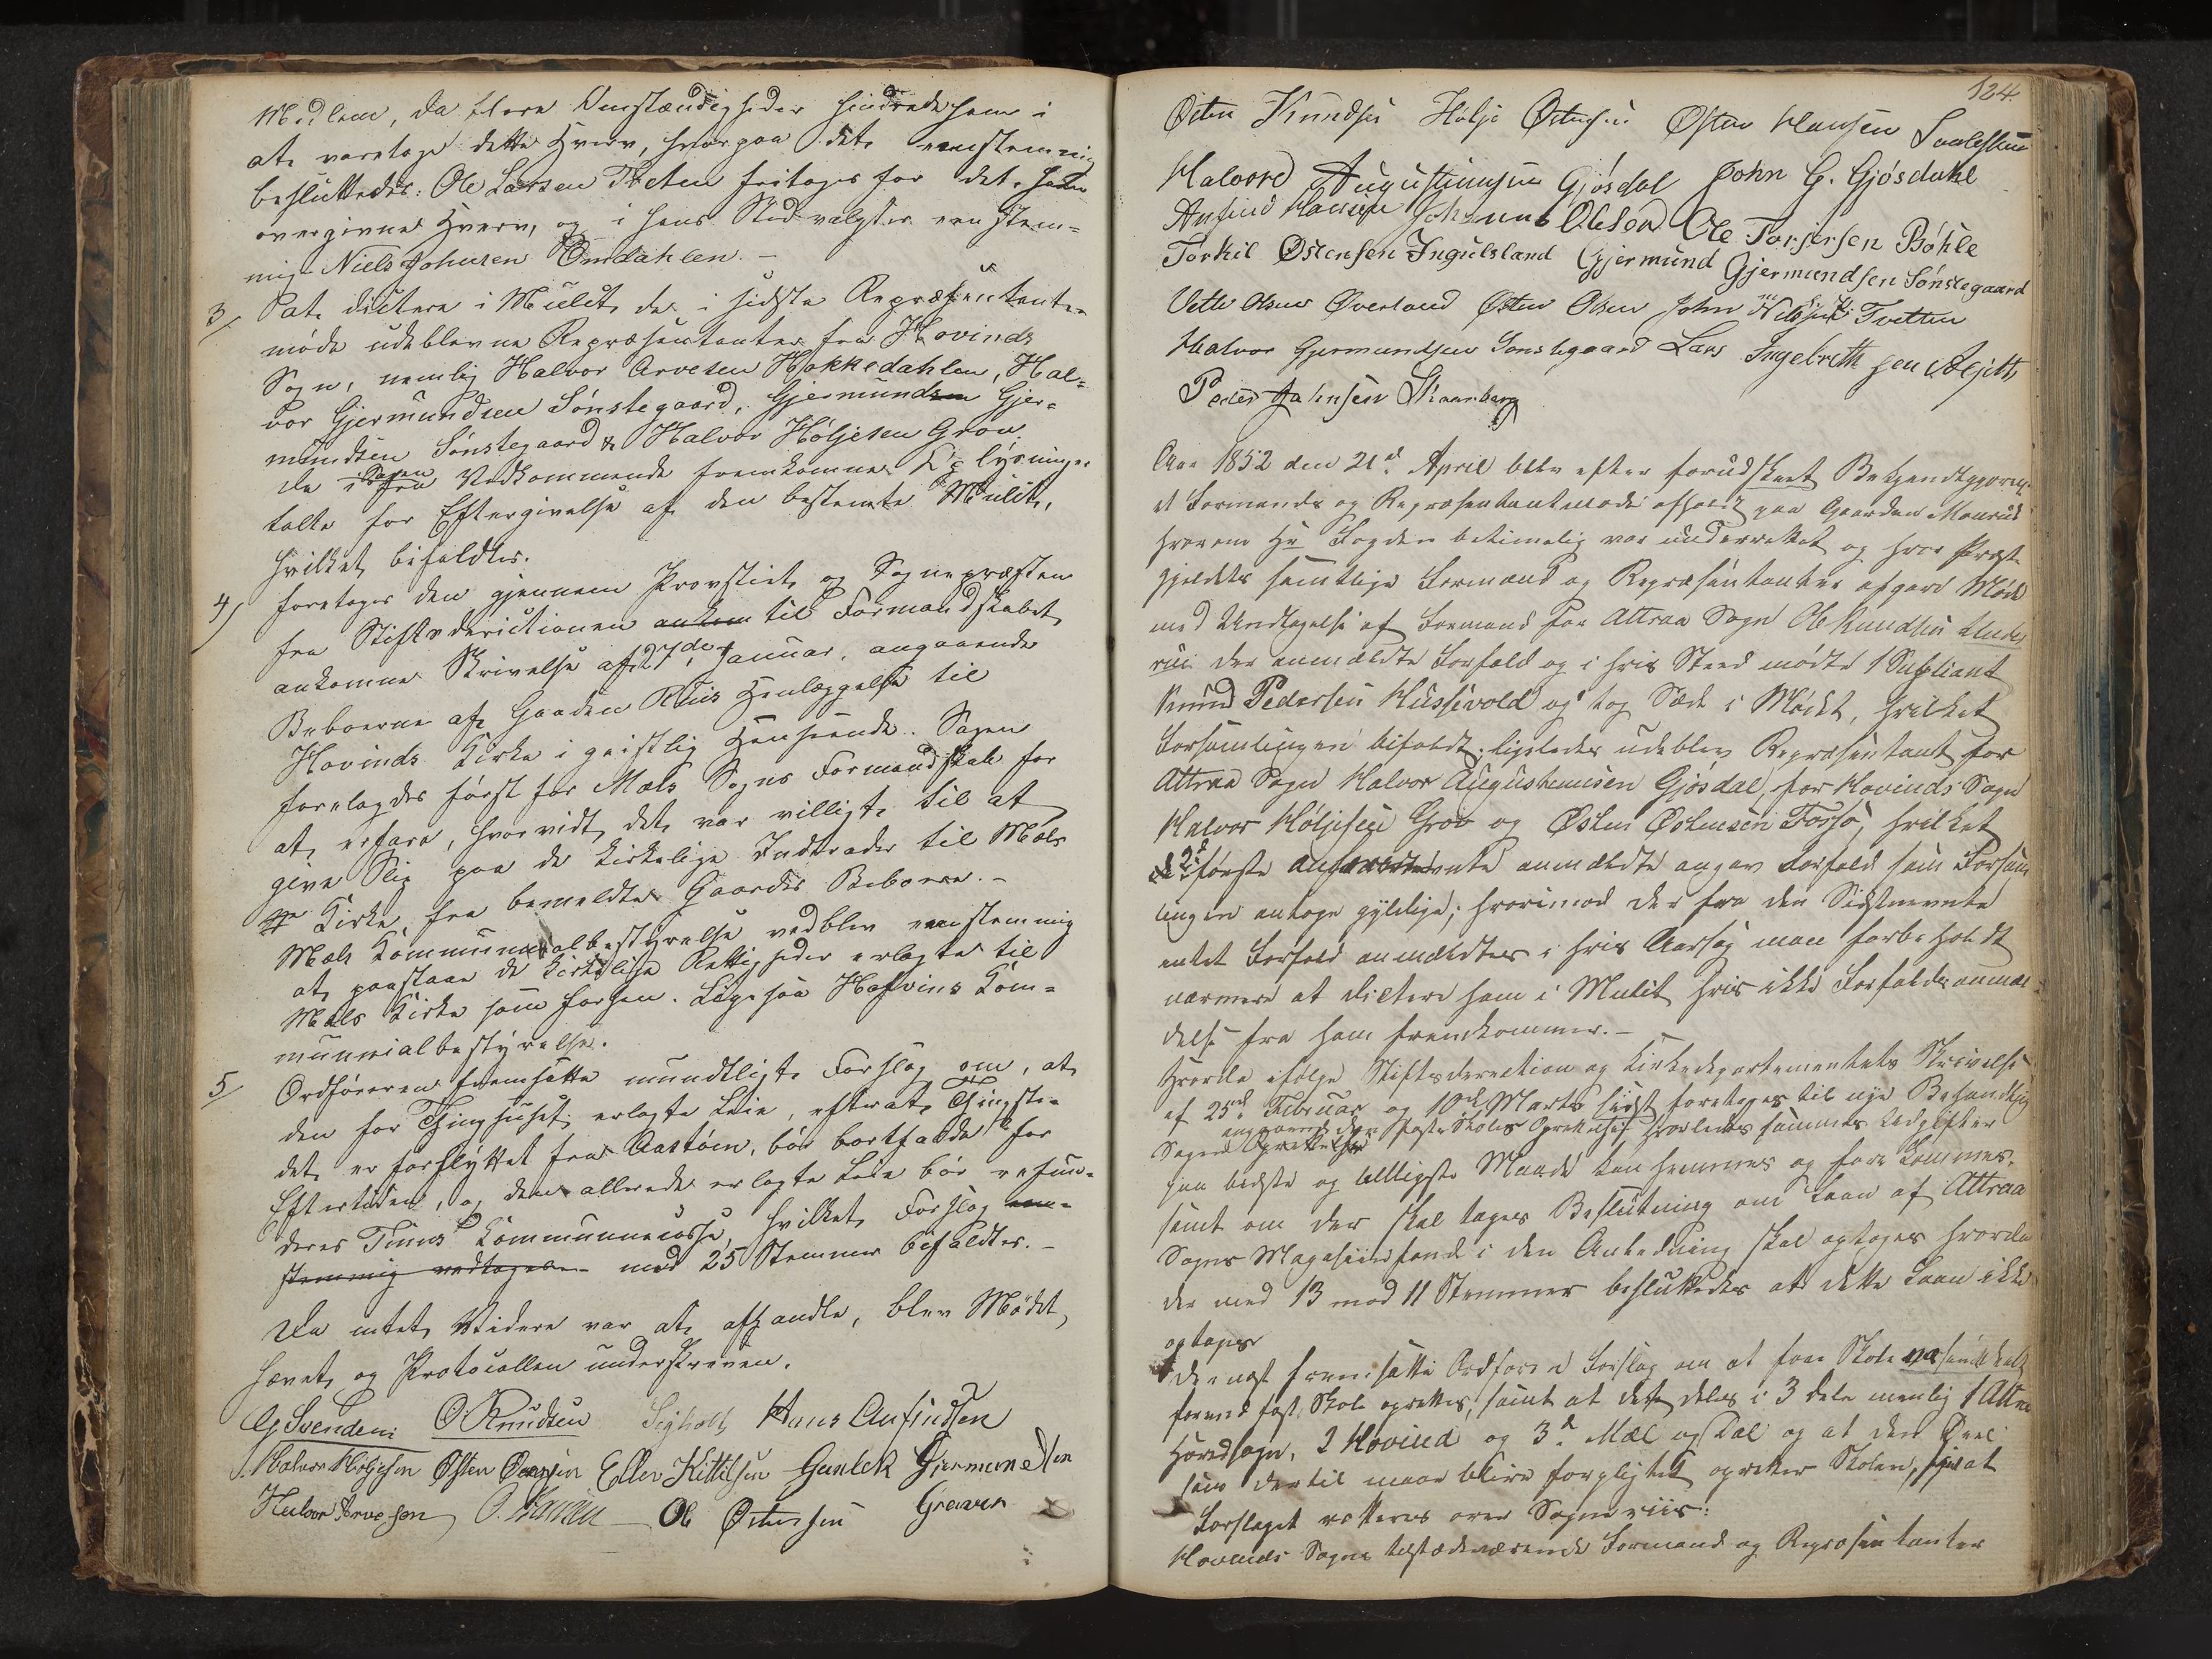 Medlem, da flere Omstændigheder hindrede ham i
at varetage dette Hverv, hvorpaa det eenstemmig
besluttedes: Ole Larsen Tveten fritages for det ham
overgivne Hverv, og i hans Sted valgtes eenstem-
mig Niels Johnsen Omdahlen. -
3/ At dictere i Mulct de i sidste Repræsentant-
møde udeblevne Repræsentanter fra Hovinds
Sogn, nemlig Halvor Arvesen Hakkedahlen, Hal-
vor Gjermundsen Sønstegaard, Gjermundsen Gjer-
mundsen Sønstegaard & Halvor Høljesen Grov
Da i Sagen fra Vedkommende fremkomne Oplysninger
talte for Eftergivelse af den bestemte Mulct,
hvilket bifaldtes.
4) Foretoges den gjennem Provstiet og Sognepræsten
fra Stiftsdirectionen ankom til Formandskabet
ankomne Skrivelse af 27de Januar, angaaende
Beboerne af Gaarden Riis Henlæggelse til
Hovinds Kirke i geistlig Henseende. Sagen
forelagdes først for Mæls Sogns Formandskab for
at erfare, hvorvidt det var villigt til at
give Slip paa de kirkelige Indtægter til Mæls
Kirke, fra bemeldte Gaards Beboere. -
Mæls Kommunalbestyrelse vedblev eenstemmig
at paastaae de kirkelige Rettigheder erlagte til
Mæls Kirke som forhen. Ligesaa Hofvins Kom-
munnialbestyrelse.
5/ Ordføreren fremsatte mundtligt Forslag om, at
den for Thinghuset erlagte Leie, efterat Thingste-
det er forflyttet fra Aastøen, bør bortfalde for
Eftertiden, og den allerede erlagte Leie bør refun-
deres Tinns Kommunecasse, hvilket Forslag een-
stemmig vedtages med 25 Stemmer bifaldtes. -
Da intet Videre var at afhandle, blev Mødet
hævet og Protocollen underskreven.
G Svendsen O Knudsen Hans Anfindsen
Halvor Høljesen Østen Eller Kittilsen Gunlek Giermundsen
Halvor Arvesen Ole Østensen Graver
124.
Østen Knudsen Hølje Østensen Østen Hansen
Halvord Augustinusen Gjøsdal John G. Gjøsdahl
Anfind Hansen Johannes Olesen Ole Torjersen Bøhle
Torkil Østensen Ingulsland Gjermund Gjermundsen Sønstegaard
Vetle Olsen Øverland Østen Olsen John Nilsen Tvetten
Halvor Gjermundsen Sønstegaard Lars Ingebrethsen
Peder Johnsen Skaarberg
Aar 1852 den 21de April blev efter forudskeet Bekjendtgjørelse
et Formands og Repræsentantmøde afholdt paa Gaarden Manrud
hvorom Hr Fogden betimelig var underrettet og hvor Præste-
gjeldets samtlige Formænd og Repræsentanter afgave Møde
med Undtagelse af Formand for Attraa Sogn Ole Knudsen
der anmældte Forfald og i hvis Sted mødte 1 Supliant
Knud Pedersen Hussevold og tog Sæde i Mødet, hvilket
Forsamlingen bifaldt. ligeledes udeblev Repræsentant for
Attraa Sogn Halvor Augustinusen Gjøsdal, for Hovinds Sogn
Halvor Høljesen Grov og Østen Østensen Fosso, hvilket
de 2de første anmældte angav Forfald som Forsam-
lingen antoge gyldige; hvorimod der fra den Sidstnævnte
intet Forfald anmældtes i hvis Aarsag man forbeholdt
nærmere at dictere ham i Mulct hvis ikke Forfaldsanmæl-
delse fra ham fremkommer. -
Hvorda ifølge Stiftsdirection og Kirkedepartementets Skrivelse
af 25de Februar og 10de Marts sidst foretages til nye Behandling
Sagen angaaende faste Skolers Oprettelse, hvorledes sammes Udgifter
paa bedste og billigste Maade kan fremmes og
samt om der skal tages Beslutning om Laan af Attraa
Sogns Magasinsfond i den Anledning skal optages hvorda
der med 13 mod 11 Stemmer besluttedes at dette Laan ikke
optages
Dernæst fremsatte Ordføreren Forslag om at
forend fast Skole oprettes, samt at det deles i 3 dele nemlig 1 Attraa
Hovedsogn, 2 Hovind og 3de Mæl og Dal og at den Deel
som dertil maae blive forpligtet opretter Skolen, hvorat
Forslaget voteres over Sogneviis:
Hovinds Sogns tilstædeværende Formænd og Repræsentanter